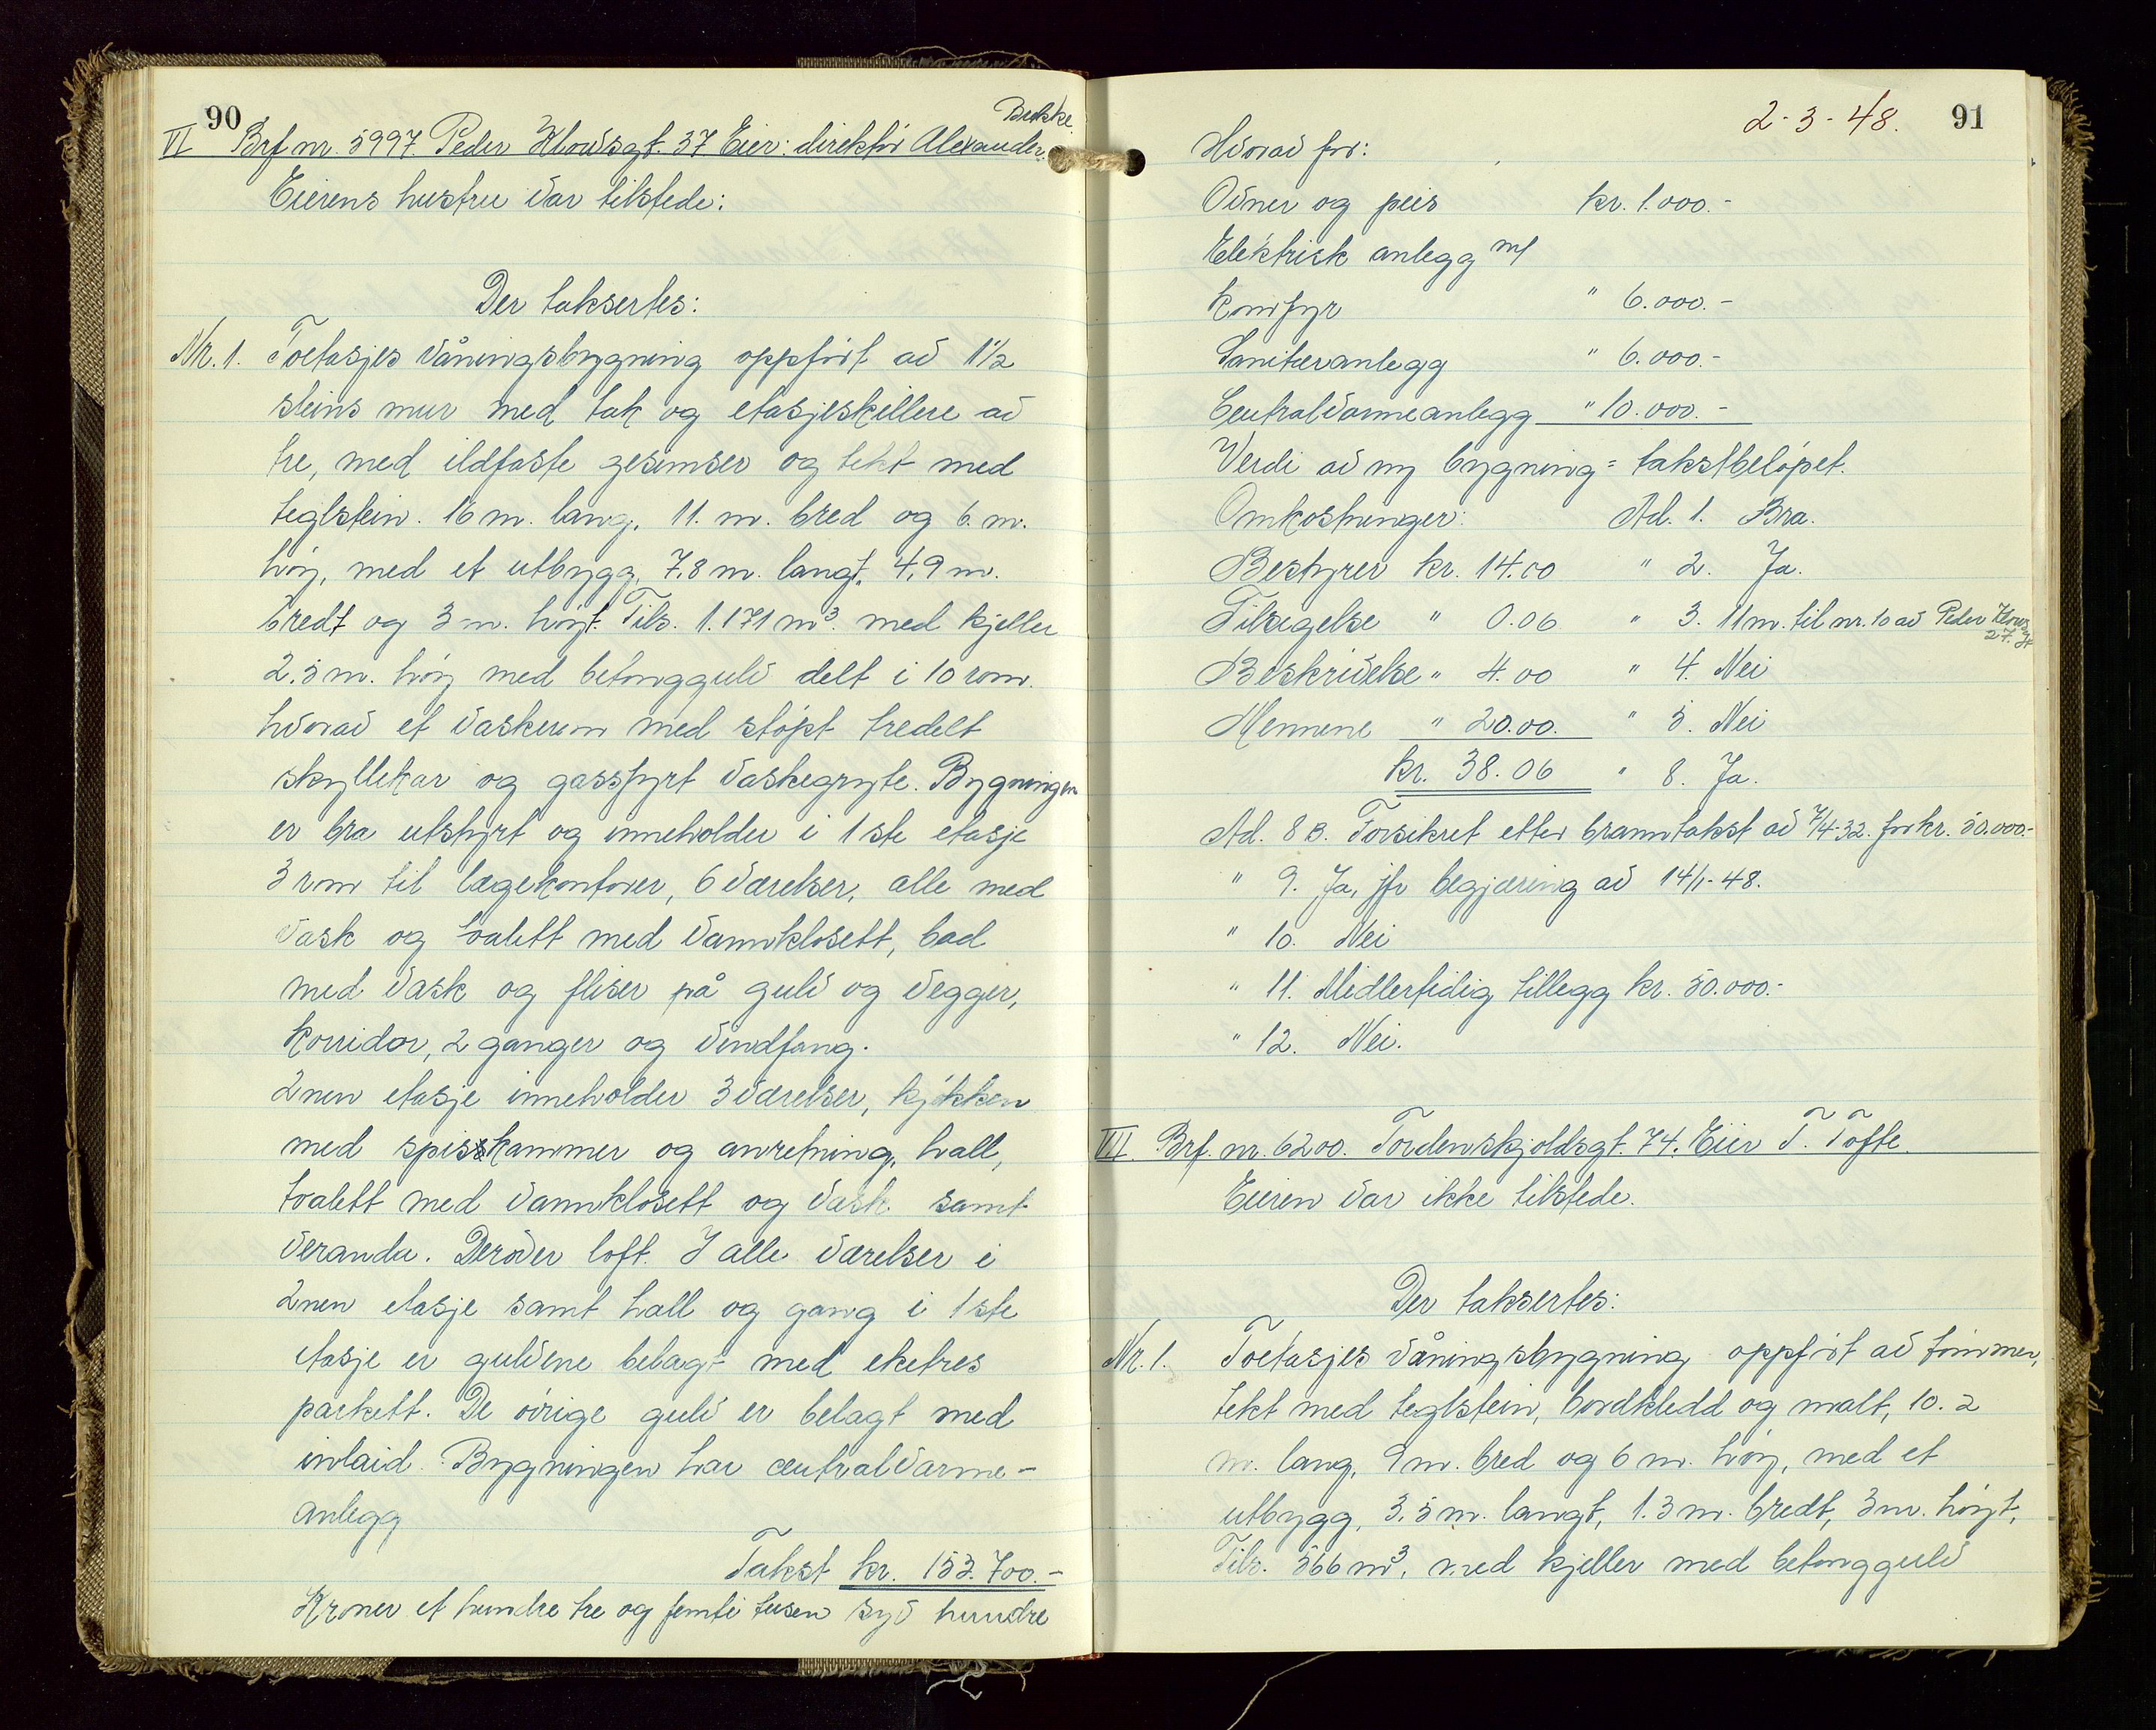 90
Bukke
VI Brf nr. 5997. Peder Klowsgt. 37 Eier: direktör Alexander.
Eierens hustru var tilstede:
Der taksertes:
Nr. 1. Toetasjes våningsbygning oppfört av 1 1/2
steins mur med tak og etasjeskillere av
tre, med ildfaste gesimser og tekt med
teglstein. 16 m. lang, 11. m. bred og 6. m.
höy, med et utbygg, 7,8 m. langt, 4,9 m.
bredt og 3 m. höyt. Tils. 1.171 m³. med kjeller
2.5 m. höy med betonggulv delt i 10 rom.
hvorav et vaskerom med stöpt tredelt
skyllekar og gassfyrt vaskegryte. Bygningen
er bra utstyrt og inneholder i 1ste etasje
3 rom til lægekontorer, 6 værelser, alle med
vask og toalett med vannklosett, bad
med vask og fliser på gulv og vegger,
korridor, 2 ganger og vindfang.
2nen etasje inneholder 3 værelser, kjökken
med spisskammer og anretning, hall,
toalett med vannklosett og vask samt
veranda. Derover loft. I alle værelser i
2nen etasje samt hall og gang i 1ste
etasje er gulvene belagt med eketres
parkett. De övrige gulv er belagt med
inlaid. Bygningen har centralvarme-
anlegg
Takst kr. 153.700.-
Kroner et hundre tre og femti tusen syv hundre
2-3-48. 91
Hvorav for:
Ovner og peis kr. 1.000.-
Elektrisk anlegg m/
komfyr " 6.000.-
Sanitæranlegg " 6.000.-
Centralvarmeanlegg " 10.000.-
Verdi av ny bygning = takstbelöpet.
Omkostninger: Ad. 1. Bra.
Bestyrer kr. 14.00 " 2. Ja.
Tilsigelse " 0.06 " 3. 11 m. til nr. 10 av Peder Klowsgt
27.
Beskrivelse " 4.00 " 4. Nei
Mennene " 20.00. " 5. Nei
kr. 38.06 " 8. Ja.
Ad. 8 B. Forsikret etter branntakst av 7/4-32. for kr. 50.000.-
" 9. Ja, jfr begjæring av 14/1-48.
" 10. Nei
" 11. Midlertidig tillegg kr. 50.000.-
" 12. Nei.
VII. Brf. nr. 6200. Tordenskjoldsgt. 74. Eier T. Tofte.
Eieren var ikke tilstede.
Der taksertes:
Nr. 1. Toetasjes våningsbygning oppfört av tömmer,
tekt med teglstein, bordkledd og malt, 10.2
m. lang, 9 m. bred og 6 m. höy, med et
utbygg, 3,5 m. langt, 1.3 m. bredt, 3 m. höyt,
Tils. 566 m³, med kjeller med betonggulv